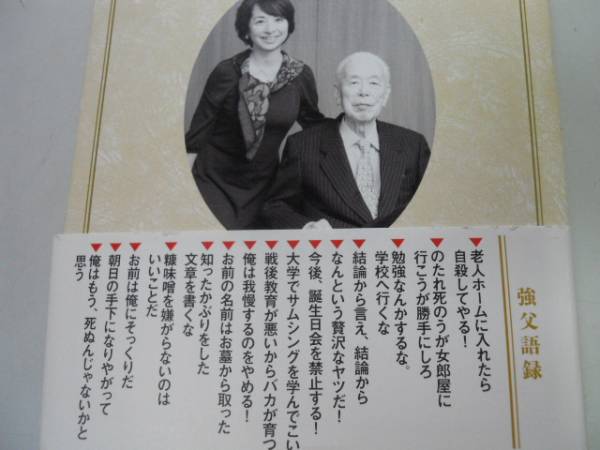 強父語録
▼老人ホームに入れたら
自殺してやる！
▼のたれ死のうが女郎屋に
行こうが勝手にしろ
▼勉強なんかするな。
学校へ行くな
▼結論から言え、結論から
▼なんという贅沢なヤツだ！
▼今後、誕生日会を禁止する！
▼大学でサムシングを学んでこい
▼戦後教育が悪いからバカが育つ
▼俺は我慢するのをやめる！
▼お前の名前はお墓から取った
▼知ったかぶりをした
文章を書くな
▼糠味噌を嫌がらないのは
いいことだ
▼お前は俺にそっくりだ
▼朝日の手下になりやがって
▼俺はもう、死ぬんじゃないかと
思う